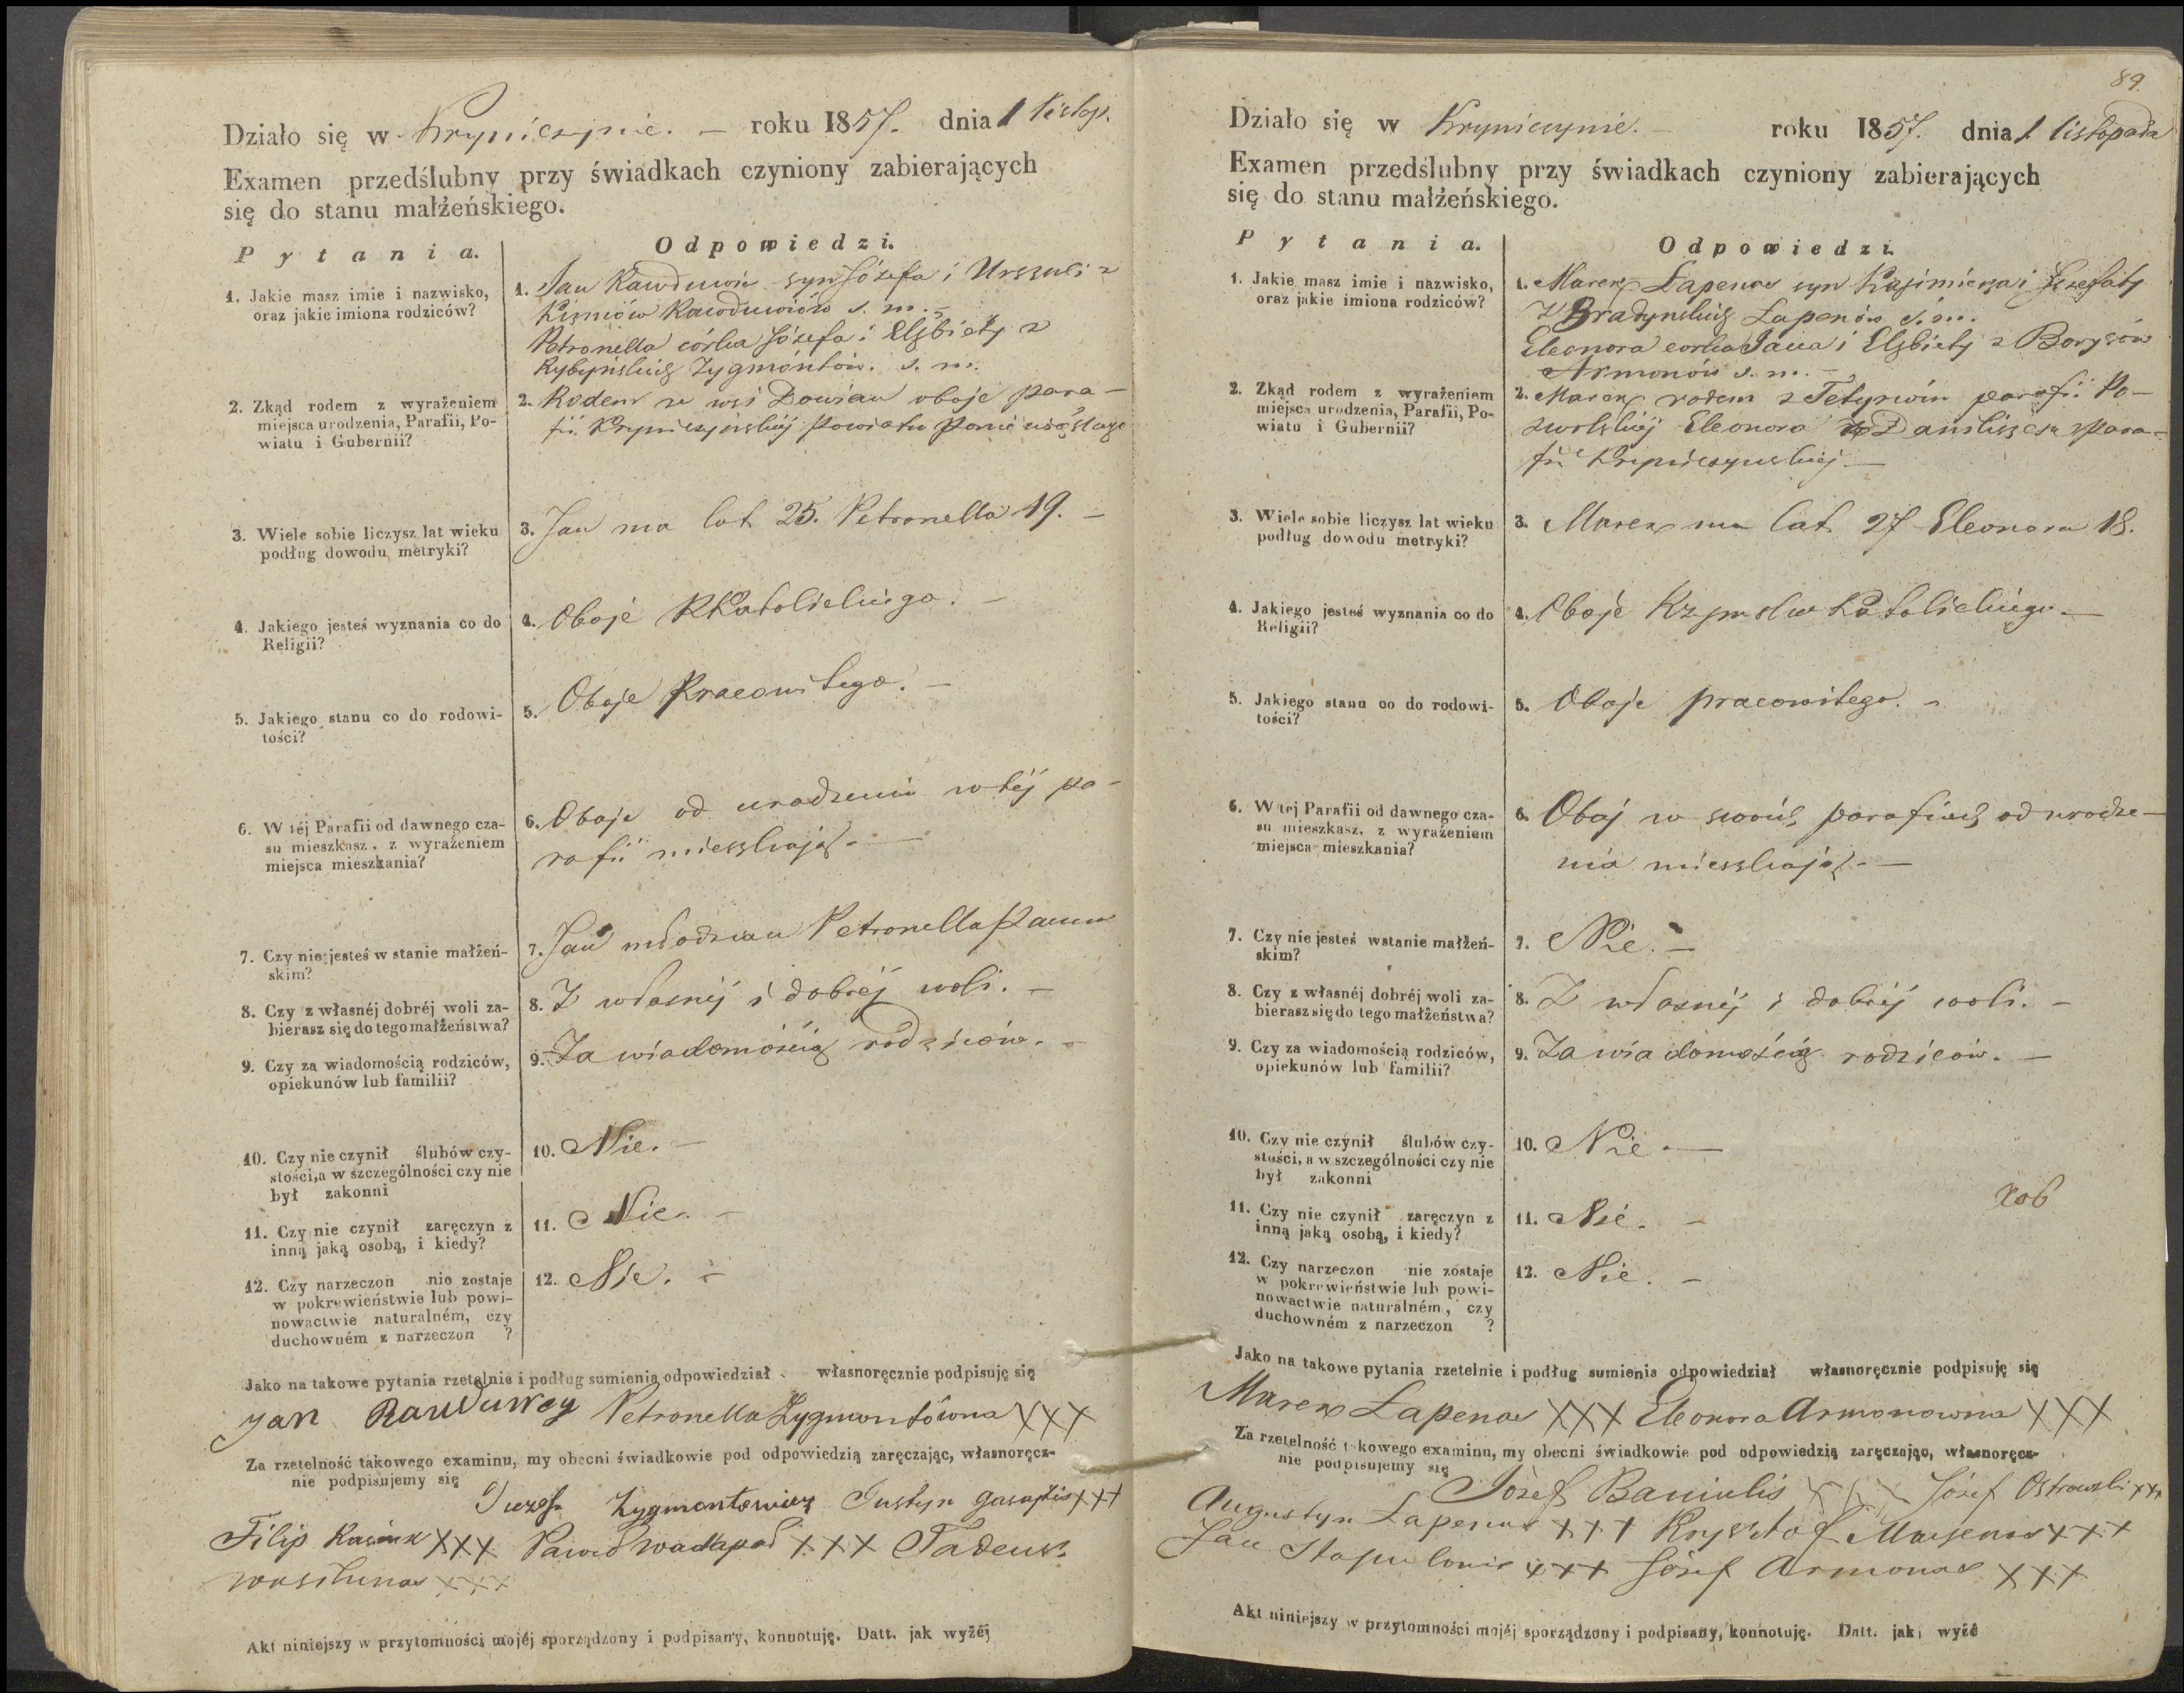 Działo się w Kryniczynie. – roku 1857. dnia 1 listop.
Examen przedślubny przy świadkach czyniony zabierających
się do stanu małżeńskiego.
Pytania.
Odpowiedzi.
1. Jakie masz imie i nazwisko,
oraz jakie imiona rodziców?
1. Jan syn Józefa i Urszuli z
s. m. –
Petronella córka Józefa i Elżbiety z
Zygmóntów. s. m.
2. Zkąd rodem z wyrażeniem
miejsca urodzenia, Parafii, Po-
wiatu i Gubernii?
2. Rodem ze wsi Dowian oboje para-
fii Kryniczyńskiéj Powiatu
3. Wiele sobie liczysz lat wieku
podług dowodu metryki?
3. Jan ma lat 25. Petronella 19. –
4. Jakiego jesteś wyznania co do
Religii?
4. Oboje RKatolickiego. –
5. Jakiego stanu co do rodowi-
tości?
5. Oboje Pracowitego. –
6. W téj Parafii od dawnego cza-
su mieszkasz, z wyrażeniem
miejsca mieszkania?
6. Oboje od urodzenia w téj pa-
rafii mieszkają. –
7. Czy nie jesteś w stanie małżeń-
skim?
7. Jan młodzian Petronella Panna
8. Czy z własnéj dobréj woli za-
bierasz się do tego małżeństwa?
8. Z własnéj i dobréj woli. –
9. Czy za wiadomością rodziców,
opiekunów lub familii?
9. Za wiadomością rodziców. –
10. Czy nie czynił ślubów czy-
stości, a w szczególności czy nie
był zakonni
10. Nie. –
11. Czy nie czynił zaręczyn z
inną jaką osobą, i kiedy?
11. Nie. –
12. Czy narzeczon nie zostaje
w pokrewieństwie lub powi-
nowactwie naturalném, czy
duchowném z narzeczon ?
12. Nie. –
Jako na takowe pytania rzetelnie i podług sumienia odpowiedział własnoręcznie podpisuję się
Jan Petronella Zygmontówna XXX
Za rzetelność takowego examinu, my obecni świadkowie pod odpowiedzią zaręczając, własnoręcz-
nie podpisujemy się
Zygmontowicz Justyn XXX
Filip XXX Paweł XXX Tadeusz
XXX
Akt niniejszy w przytomności mojéj sporządzony i podpisany, konnotuję. Datt. jak wyżéj
89
Działo się w Kryniczynie. – roku 1857. dnia 1 listopada
Examen przedślubny przy świadkach czyniony zabierających
się do stanu małżeńskiego.
Pytania.
Odpowiedzi.
1. Jakie masz imie i nazwisko,
oraz jakie imiona rodziców?
1. Marek Łapenas syn Kazimierza i Jozefaty
z Łapenów s. m.
Eleonora corka Jana i Elżbiety z Borysów
Armonów s. m. –
2. Zkąd rodem z wyrażeniem
miejsca urodzenia, Parafii, Po-
wiatu i Gubernii?
2. Marek rodem z Tetyrwin parafii Po-
zwolskiéj Eleonora z para-
fii Kryniczynskiej –
3. Wiele sobie liczysz lat wieku
podług dowodu metryki?
3. Marek ma lat 27 Eleonora 18.
4. Jakiego jesteś wyznania co do
Religii?
4. Oboje Katolickiego –
5. Jakiego stanu co do rodowi-
tości?
5. Oboje pracowitego. –
6. W tej Parafii od dawnego cza-
su mieszkasz, z wyrażeniem
miejsca mieszkania?
6. Oboj w swoich parafiach od urodze-
nia mieszkają. –
7. Czy nie jesteś wstanie małżeń-
skim?
7. Nie. –
8. Czy z własnéj dobréj woli za-
bierasz się do tego małżeństwa?
8. Z własnéj i dobréj woli. –
9. Czy za wiadomością rodziców,
opiekunów lub familii?
9. Za wiadomością rodziców. –
10. Czy nie czynił ślubów czy-
stości, a w szczególności czy nie
był zakonni
10. Nie –
11. Czy nie czynił zaręczyn z
inną jaką osobą, i kiedy?
11. Nie. –
12. Czy narzeczon nie zostaje
w pokrewieństwie lub powi-
nowactwie naturalném, czy
duchowném z narzeczon ?
12. Nie. –
Jako na takowe pytania rzetelnie i podług sumienia odpowiedział własnoręcznie podpisuję się
Marek Łapenas XXX Eleonora Armonowna XXX
Za rzetelność takowego examinu, my obecni świadkowie pod odpowiedzią zaręczając, własnoręcz-
nie podpisujemy się
Józef Baniulis XXX Józef Ostrowski XXX
Augustyn Łapenas XXX Krysztof XXX
Jan XXX Józef Armonas XXX
Akt niniejszy w przytomności mojéj sporządzony i podpisany, konnotuję. Datt. jak wyżé